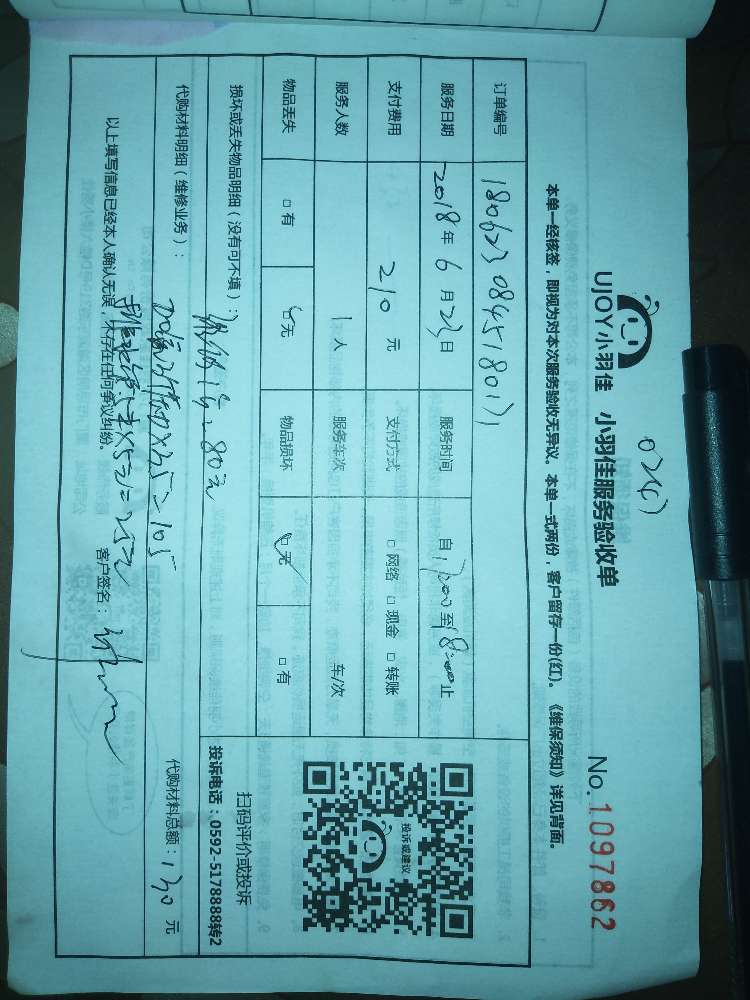 0247
UJOY小羽佳 小羽佳服务验收单
No.1097862
本单一经核签,即视为对本次服务验收无异议。本单一式两份,客户留存一份(红)。《维保须知》详见背面。
订单编号 180623084518017
服务日期 2018年6月23日 服务时间 自17:00至18:00止
支付费用 210 元 支付方式 □网络 □现金 □转账
服务人数 1人 服务车次 车/次
物品丢失 □有 ☑无 物品损坏 ☑无 □有
投诉或建议
扫码评价或投诉
投诉电话:0592-5178888转2
损坏或丢失物品明细(没有可不填):
=80元
代购材料明细(维修业务):
×35=105
5元×5=25元
代购材料总额:130元
以上填写信息已经本人确认无误,不存在任何争议纠纷。 客户签名: